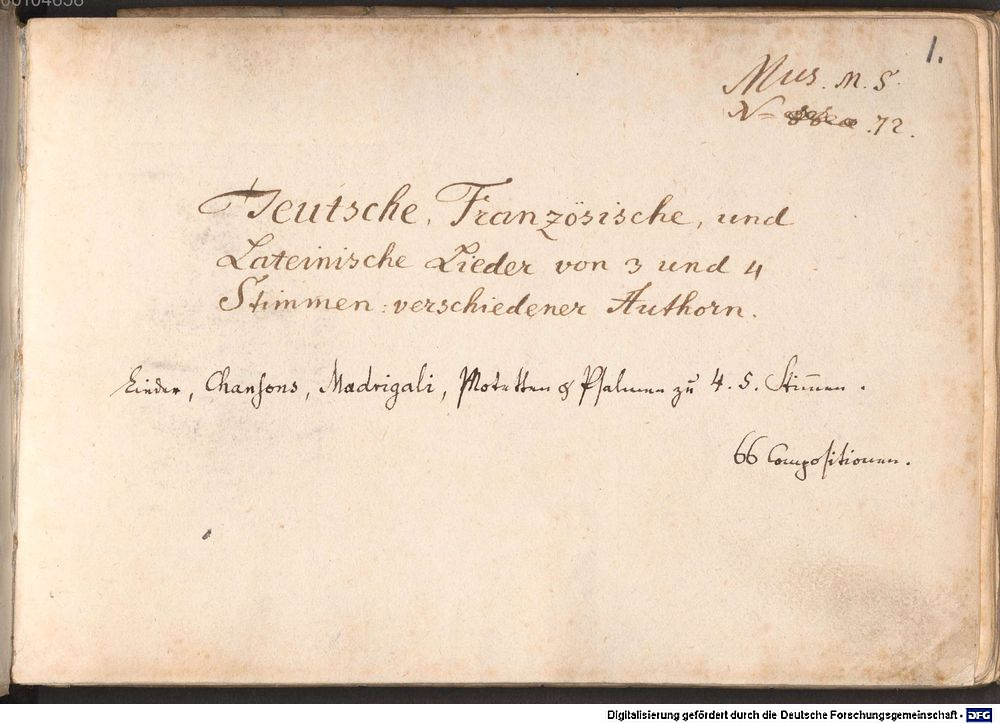 1.
Mus. M. S.
N= 72.
Teutsche, Französische, und
Lateinische Lieder von 3 und 4
Stimmen: verschiedener Authorn.
Lieder, Chansons, Madrigali, Motetten & Psalmen zu 4. 5. Stimmen.
66 Compositionen.
Digitalisierung gefördert durch die Deutsche Forschungsgemeinschaft - DFG